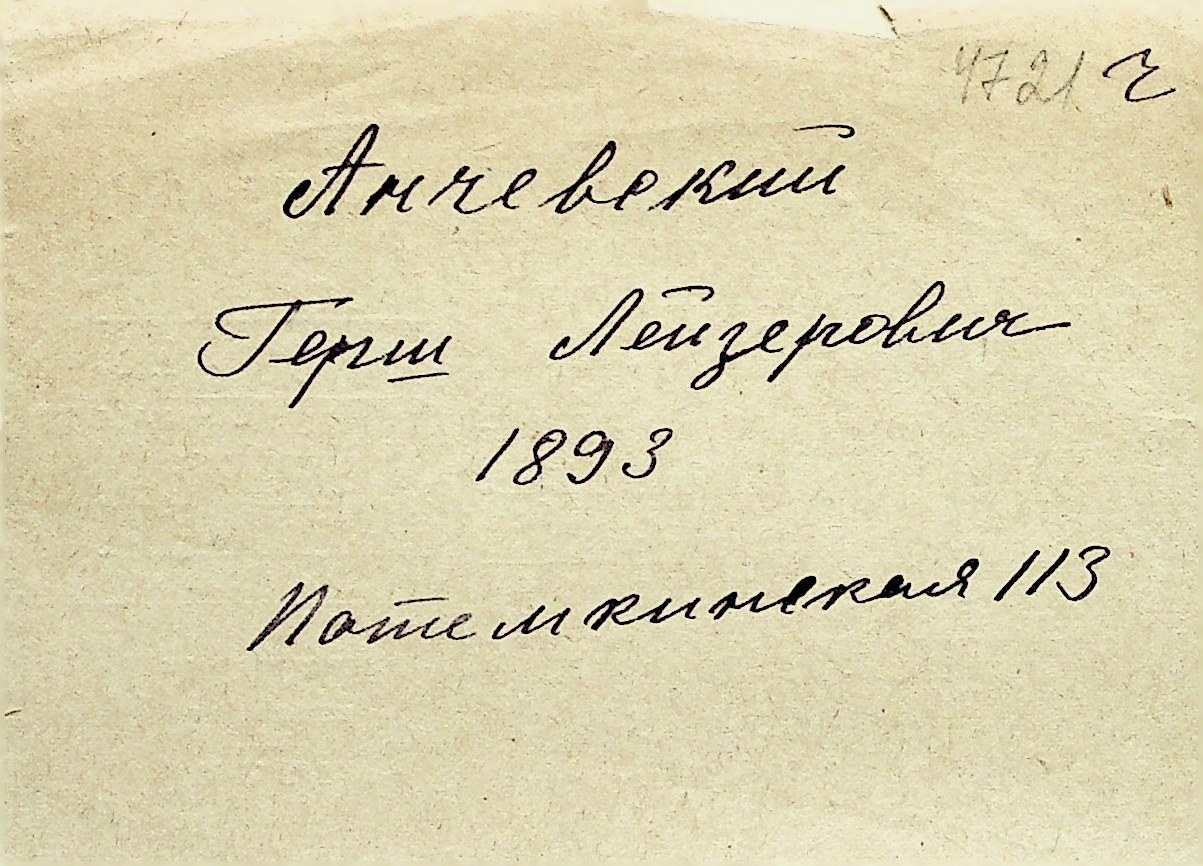 4721 ч
Анчевский
Герш Лейзерович
1893
Потемкинская 113